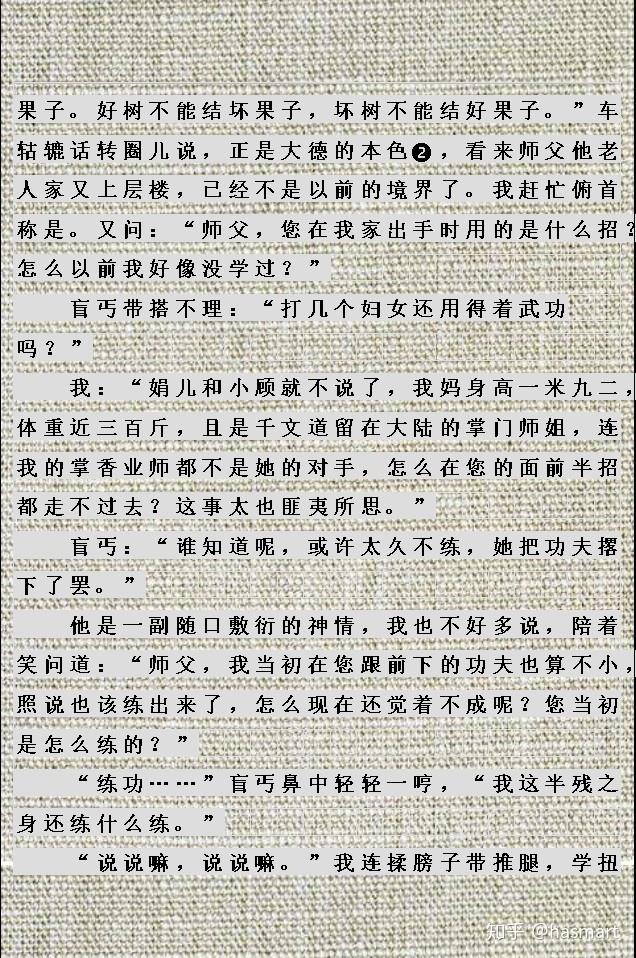 果子。好树不能结坏果子，坏树不能结好果子。”车
轱辘话转圈儿说，正是大德的本色❷，看来师父他老
人家又上层楼，已经不是以前的境界了。我赶忙俯首
称是。又问：“师父，您在我家出手时用的是什么招？
怎么以前我好像没学过？”
盲丐带搭不理：“打几个妇女还用得着武功
吗？”
我：“娟儿和小顾就不说了，我妈身高一米九二，
体重近三百斤，且是千文道留在大陆的掌门师姐，连
我的掌香业师都不是她的对手，怎么在您的面前半招
都走不过去？这事太也匪夷所思。”
盲丐：“谁知道呢，或许太久不练，她把功夫撂
下了罢。”
他是一副随口敷衍的神情，我也不好多说，陪着
笑问道：“师父，我当初在您跟前下的功夫也算不小，
照说也该练出来了，怎么现在还觉着不成呢？您当初
是怎么练的？”
“练功……”盲丐鼻中轻轻一哼，“我这半残之
身还练什么练。”
“说说嘛，说说嘛。”我连揉膀子带推腿，学扭
知乎 @hasmart